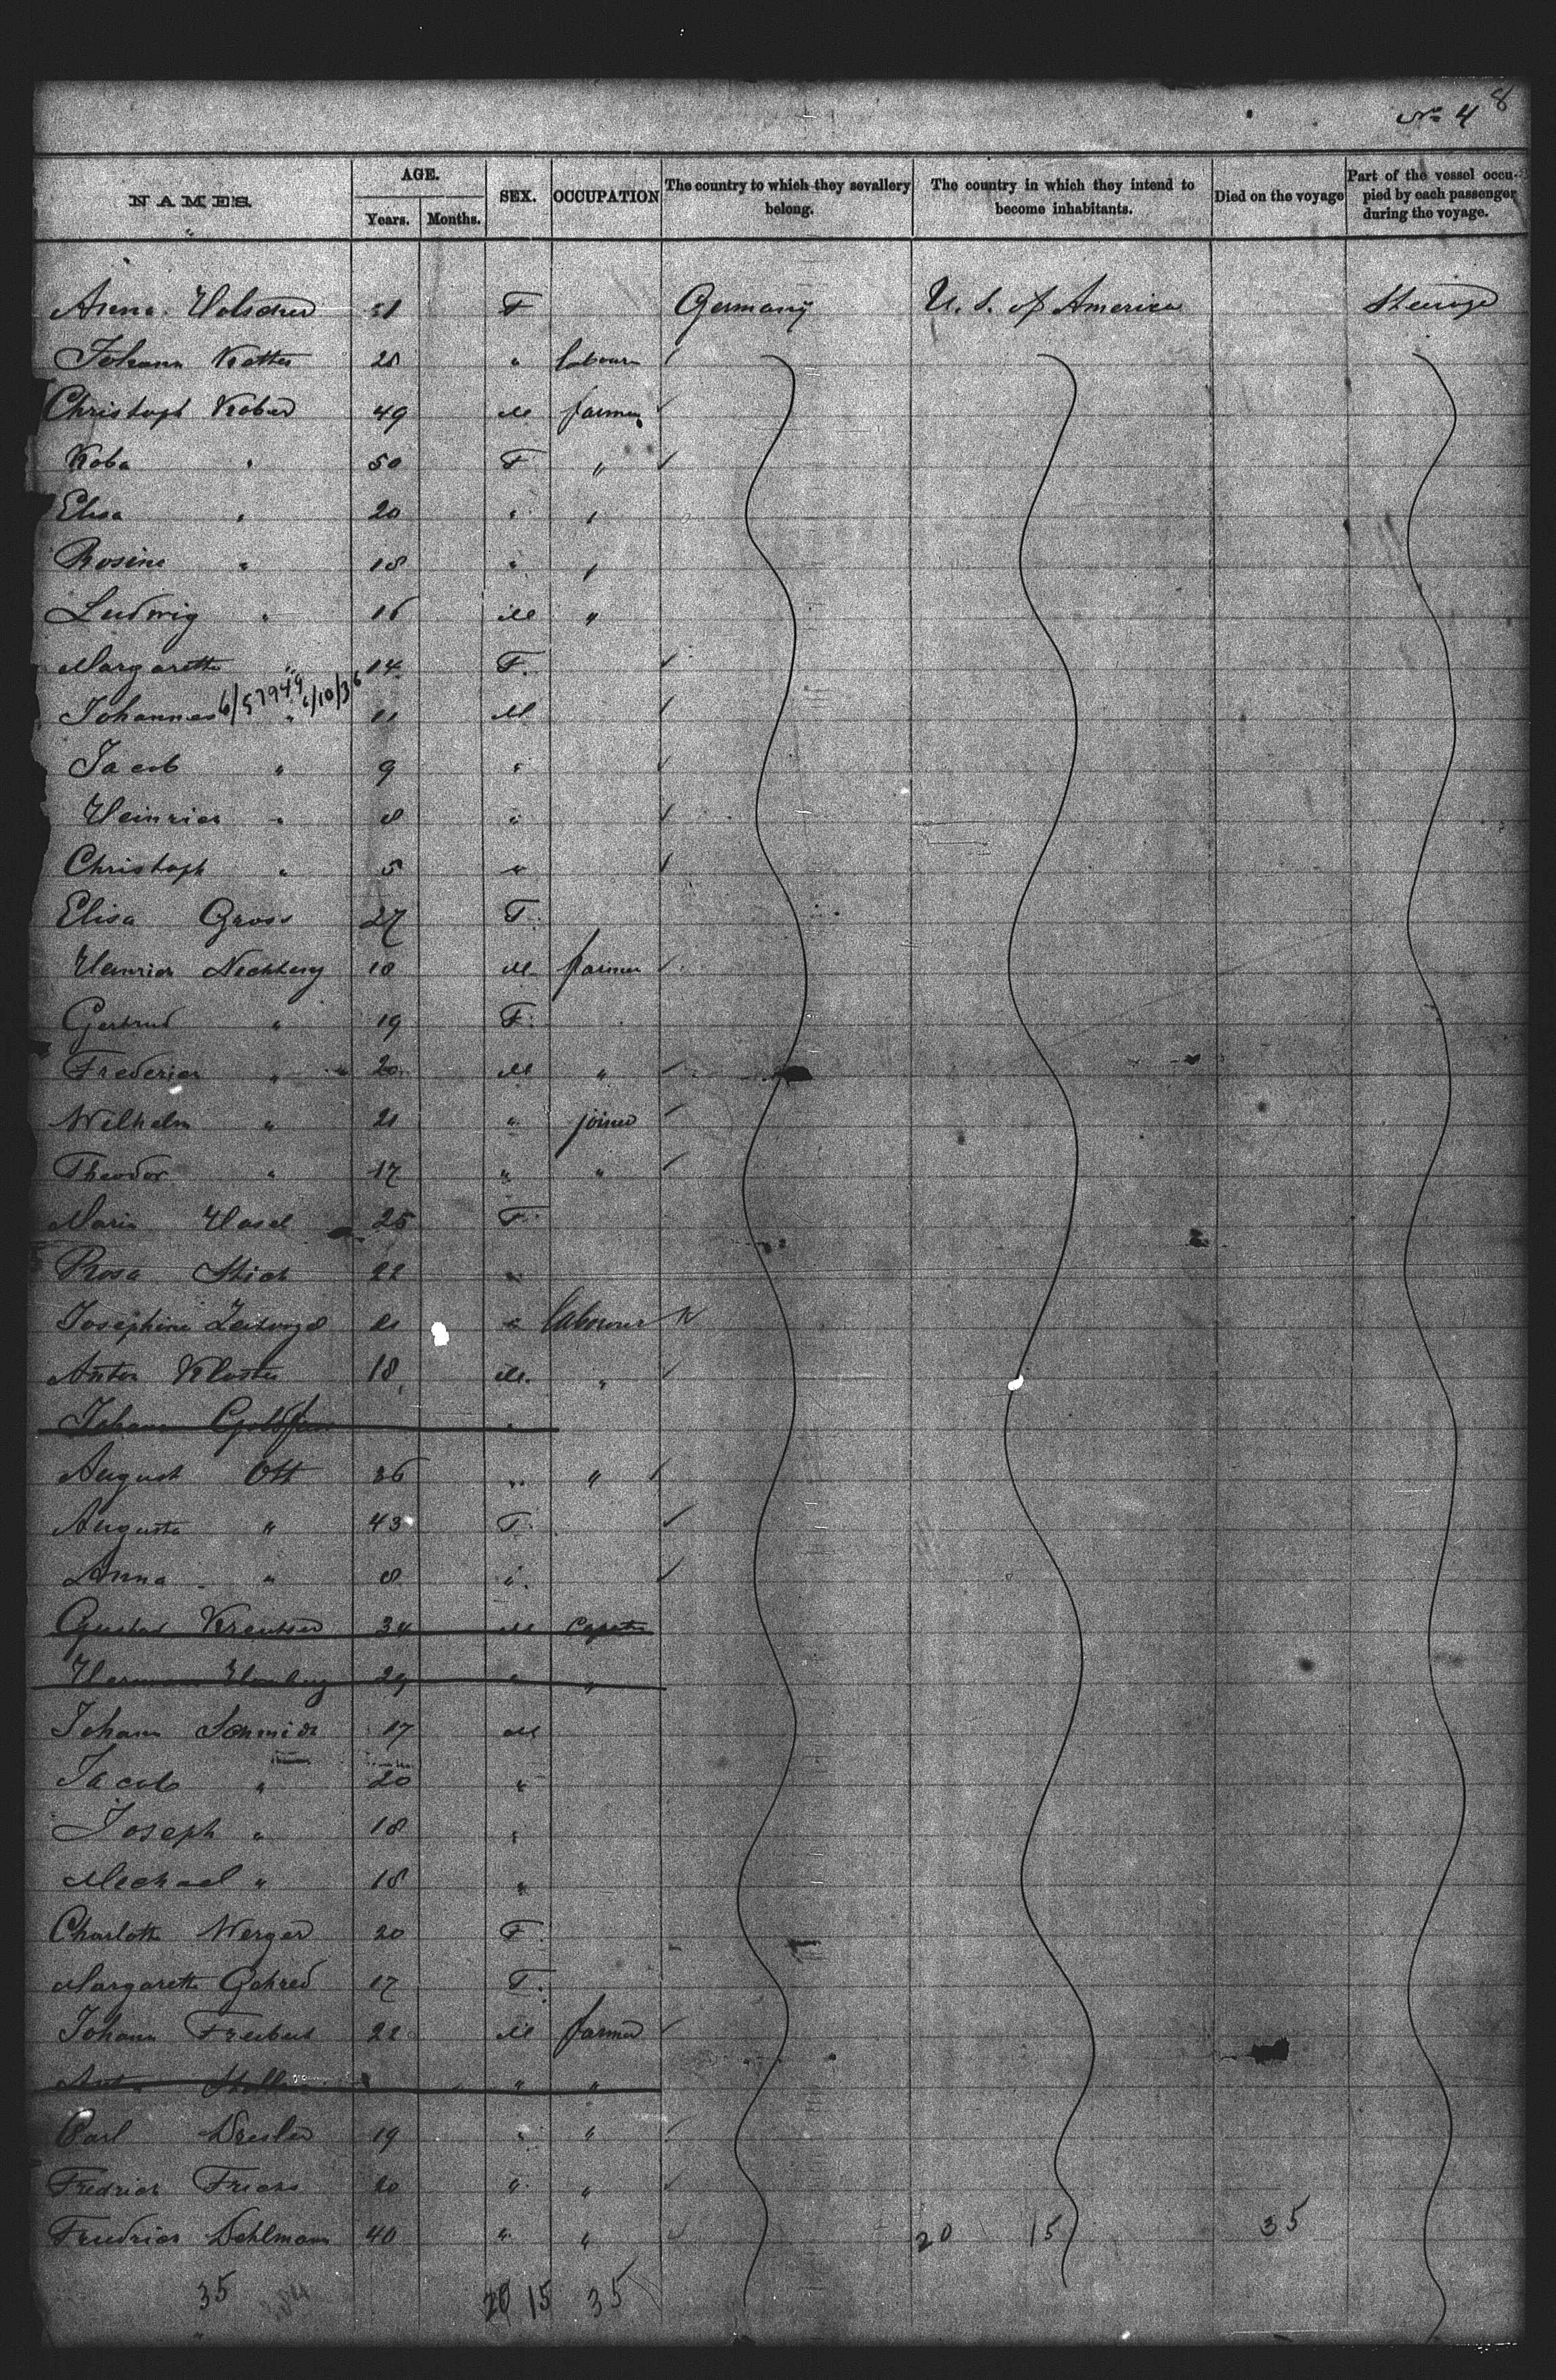 No 4 8
NAMES. AGE. SEX. OCCUPATION The country to which they sevallery belong. The country in which they intend to become inhabitants. Died on the voyage Part of the vessel occupied by each passenger during the voyage.
Years. Months.
Anna 31 F Germany U. S. of America Steerage
Johann 28 " labourer
Christoph Kober 49 M farmer
50 F "
Elisa " 20 " "
Rosine " 18 " "
Ludwig " 16 M "
Margaretha " 14 F.
Johannes 6/57949 6/10/36 " 11 M
Jacob " 9 "
Heinrich " 8 "
Christoph " 5 "
Elisa Gross 27 F.
Heinrich 18 M farmer
Gertrud " 19 F.
Frederich " 20 M "
Wilhelm " 21 " joiner
Theodor " 17 " "
Maria Hasel 25 F.
Rosa Stich 22 "
Josephine 21 " labourer
Anton Kloster 18 M. "
Johann "
August Ott 36 " "
Augusta " 43 F.
Anna " 8 "
Gustav Kreutzer 34 M
Hermann 29 " "
Johann Schmidt 17 M
Jacob " 20 "
Joseph " 18 "
Michael " 18 "
Charlotte Werger 20 F.
Margareth 17 F.
Johann 22 M farmer
" "
Carl 19 " "
Fredrich Fricks 20 " "
Friedrich Dehlmann 40 " " 20 15 35
35 20 15 35